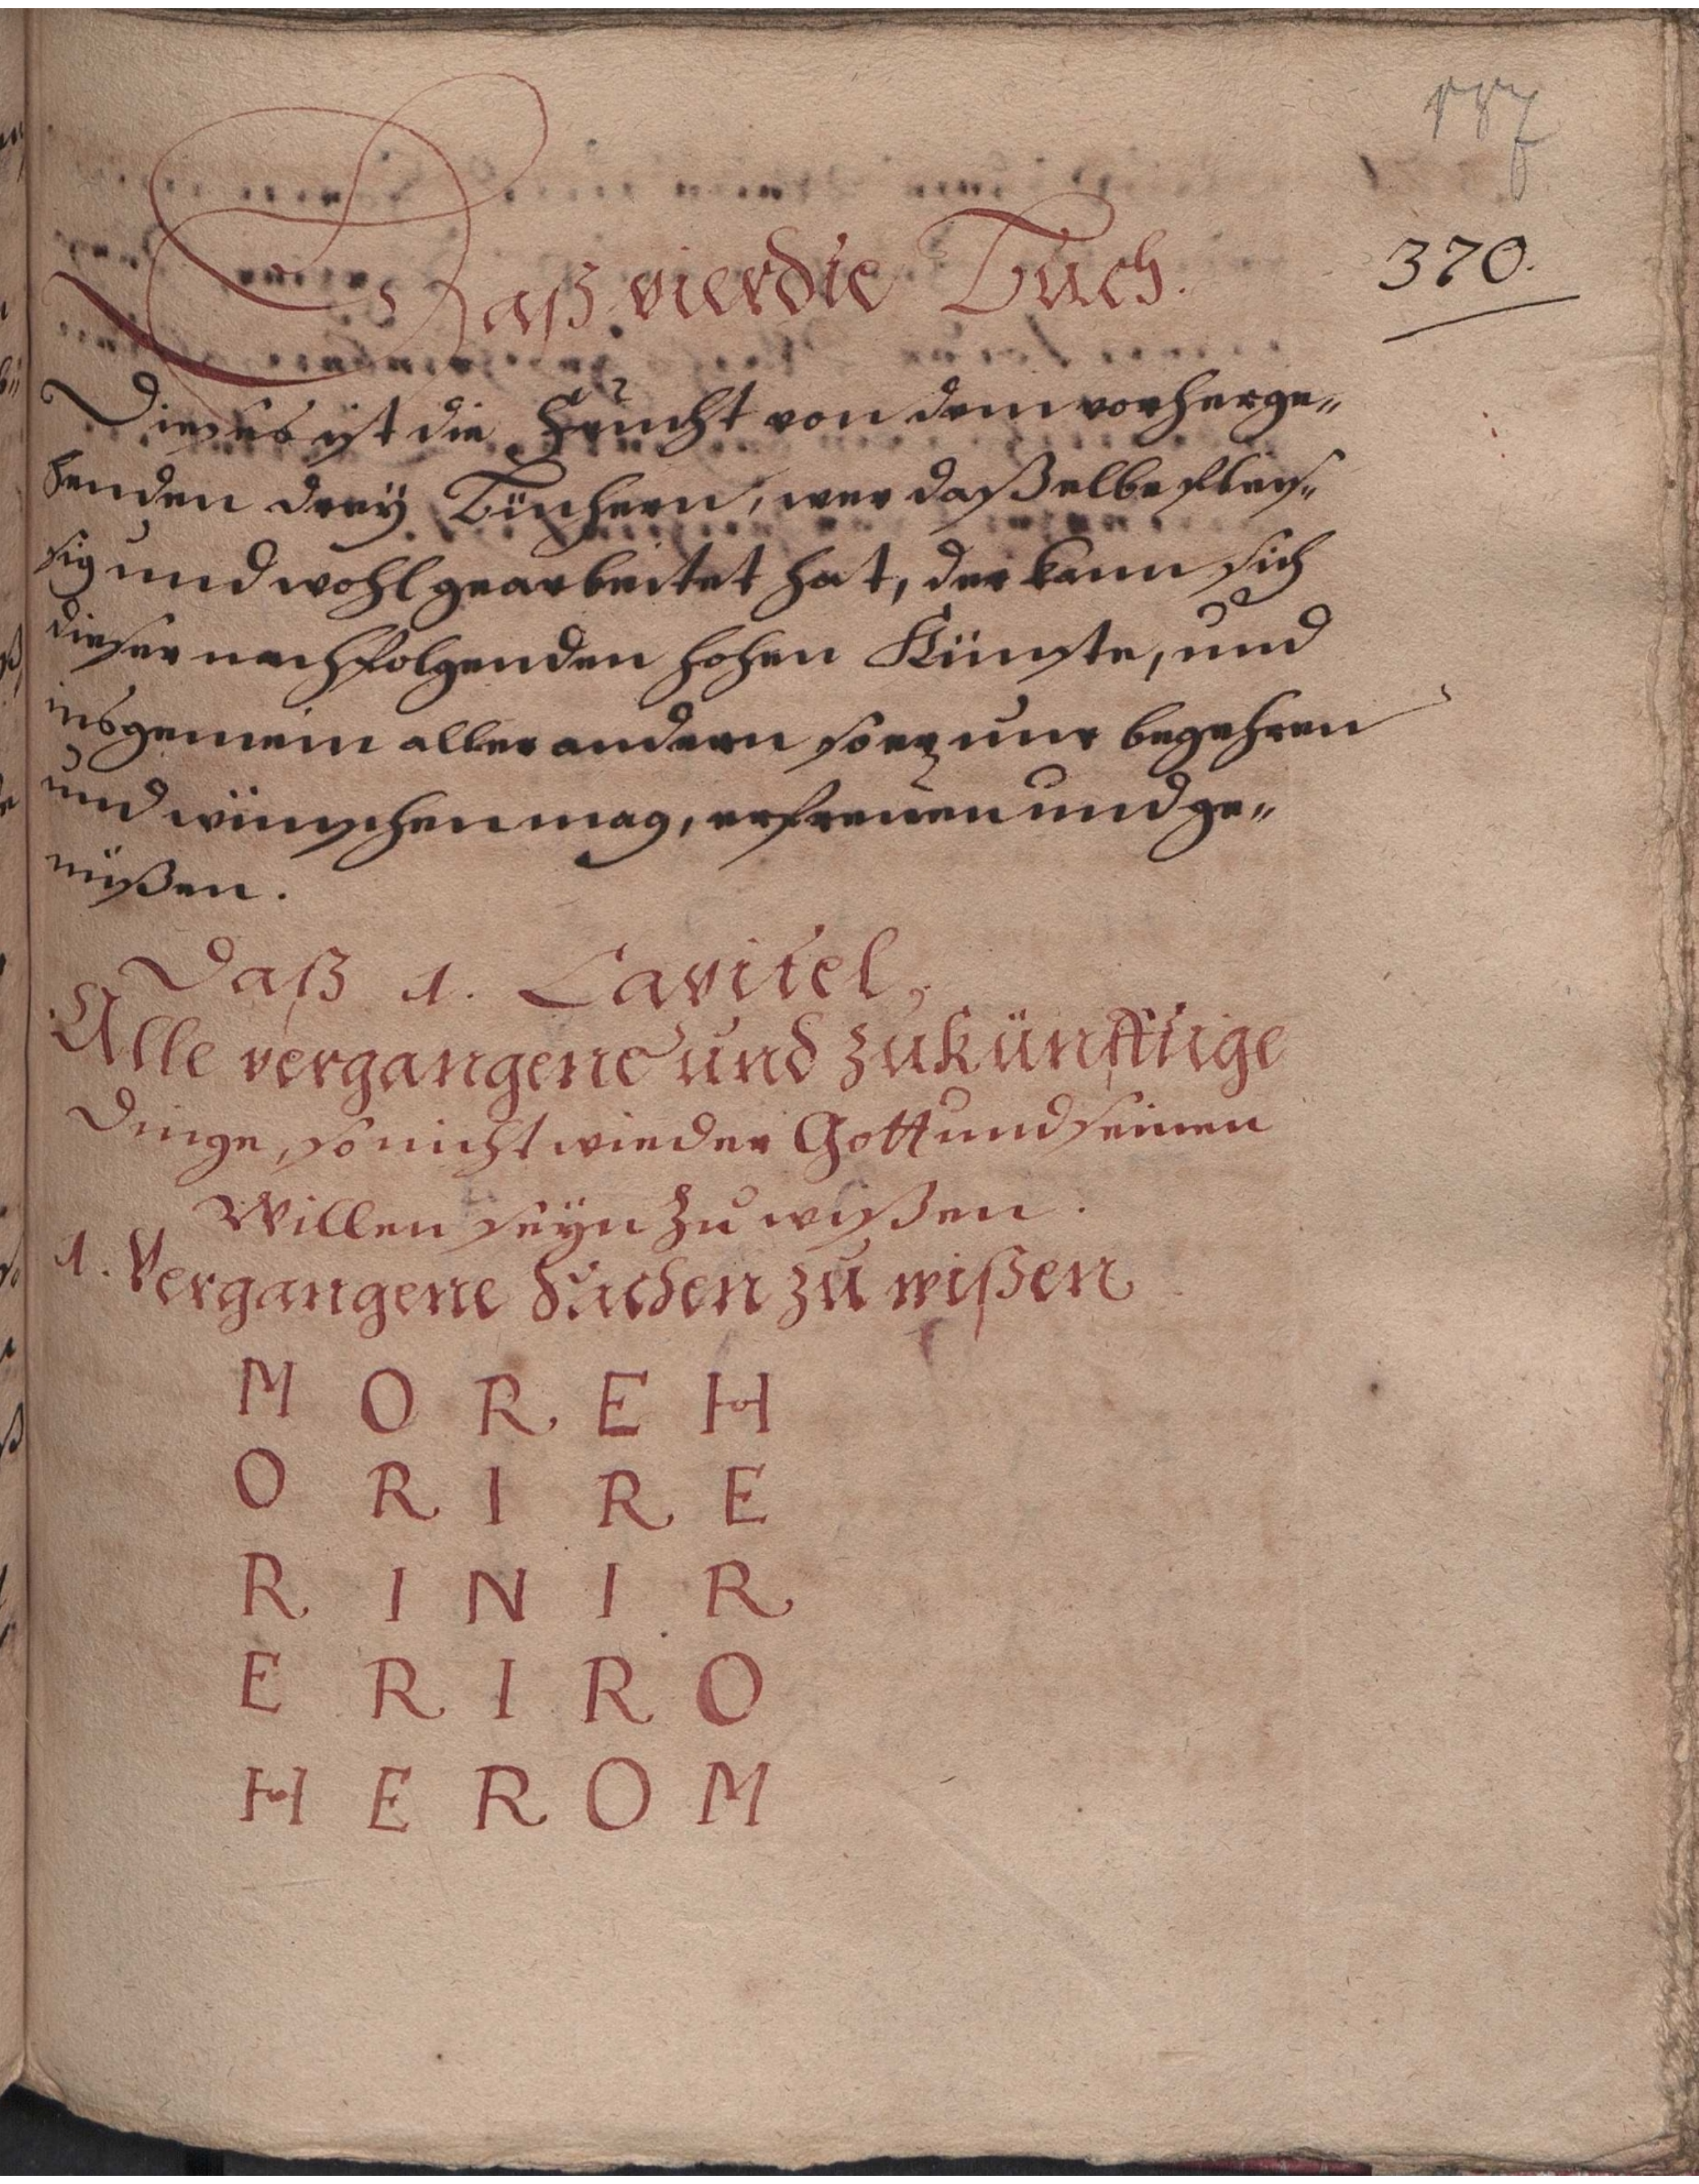 187
370.
Daß vierdte Buch.
Dieses ist die Frucht von dem vorherge„
henden dreÿ Büchern, wer daßelbe fleis„
sig und wohl gearbeitet hat, der kann sich
dieser nachfolgenden hohen Künste, und
insgemein aller andern so er nur begehren
und wünschen mag, erfreuen und ge„
nüßen.
Daß 1. Capitel,
Alle vergangene und zukünfftige
Dinge, so nicht wieder Gott und seinen
Willen seÿn zu wißen.
1. Vergangene Sachen zu wißen
M O R E H
O R I R E
R I N I R
E R I R O
H E R O M